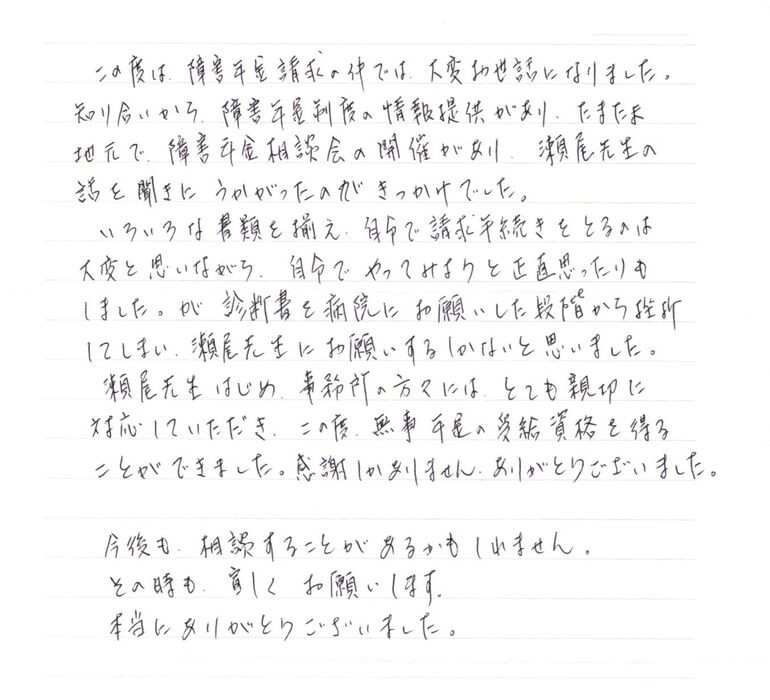 この度は、障害年金請求の件では、大変お世話になりました。
知り合いから、障害年金制度の情報提供があり、たまたま
地元で、障害年金相談会の開催があり、瀬尾先生の
話を聞きにうかがったのがきっかけでした。
いろいろな書類を揃え、自分で請求手続きをとるのは
大変と思いながら、自分でやってみようと正直思ったりも
しました。が 診断書を病院にお願いした段階から挫折
してしまい、瀬尾先生にお願いするしかないと思いました。
瀬尾先生はじめ、事務所の方々には、とても親切に
対応していただき、この度、無事年金の受給資格を得る
ことができました。感謝しかありません。ありがとうございました。
今後も、相談することがあるかもしれません。
その時も、宜しくお願いします。
本当にありがとうございました。